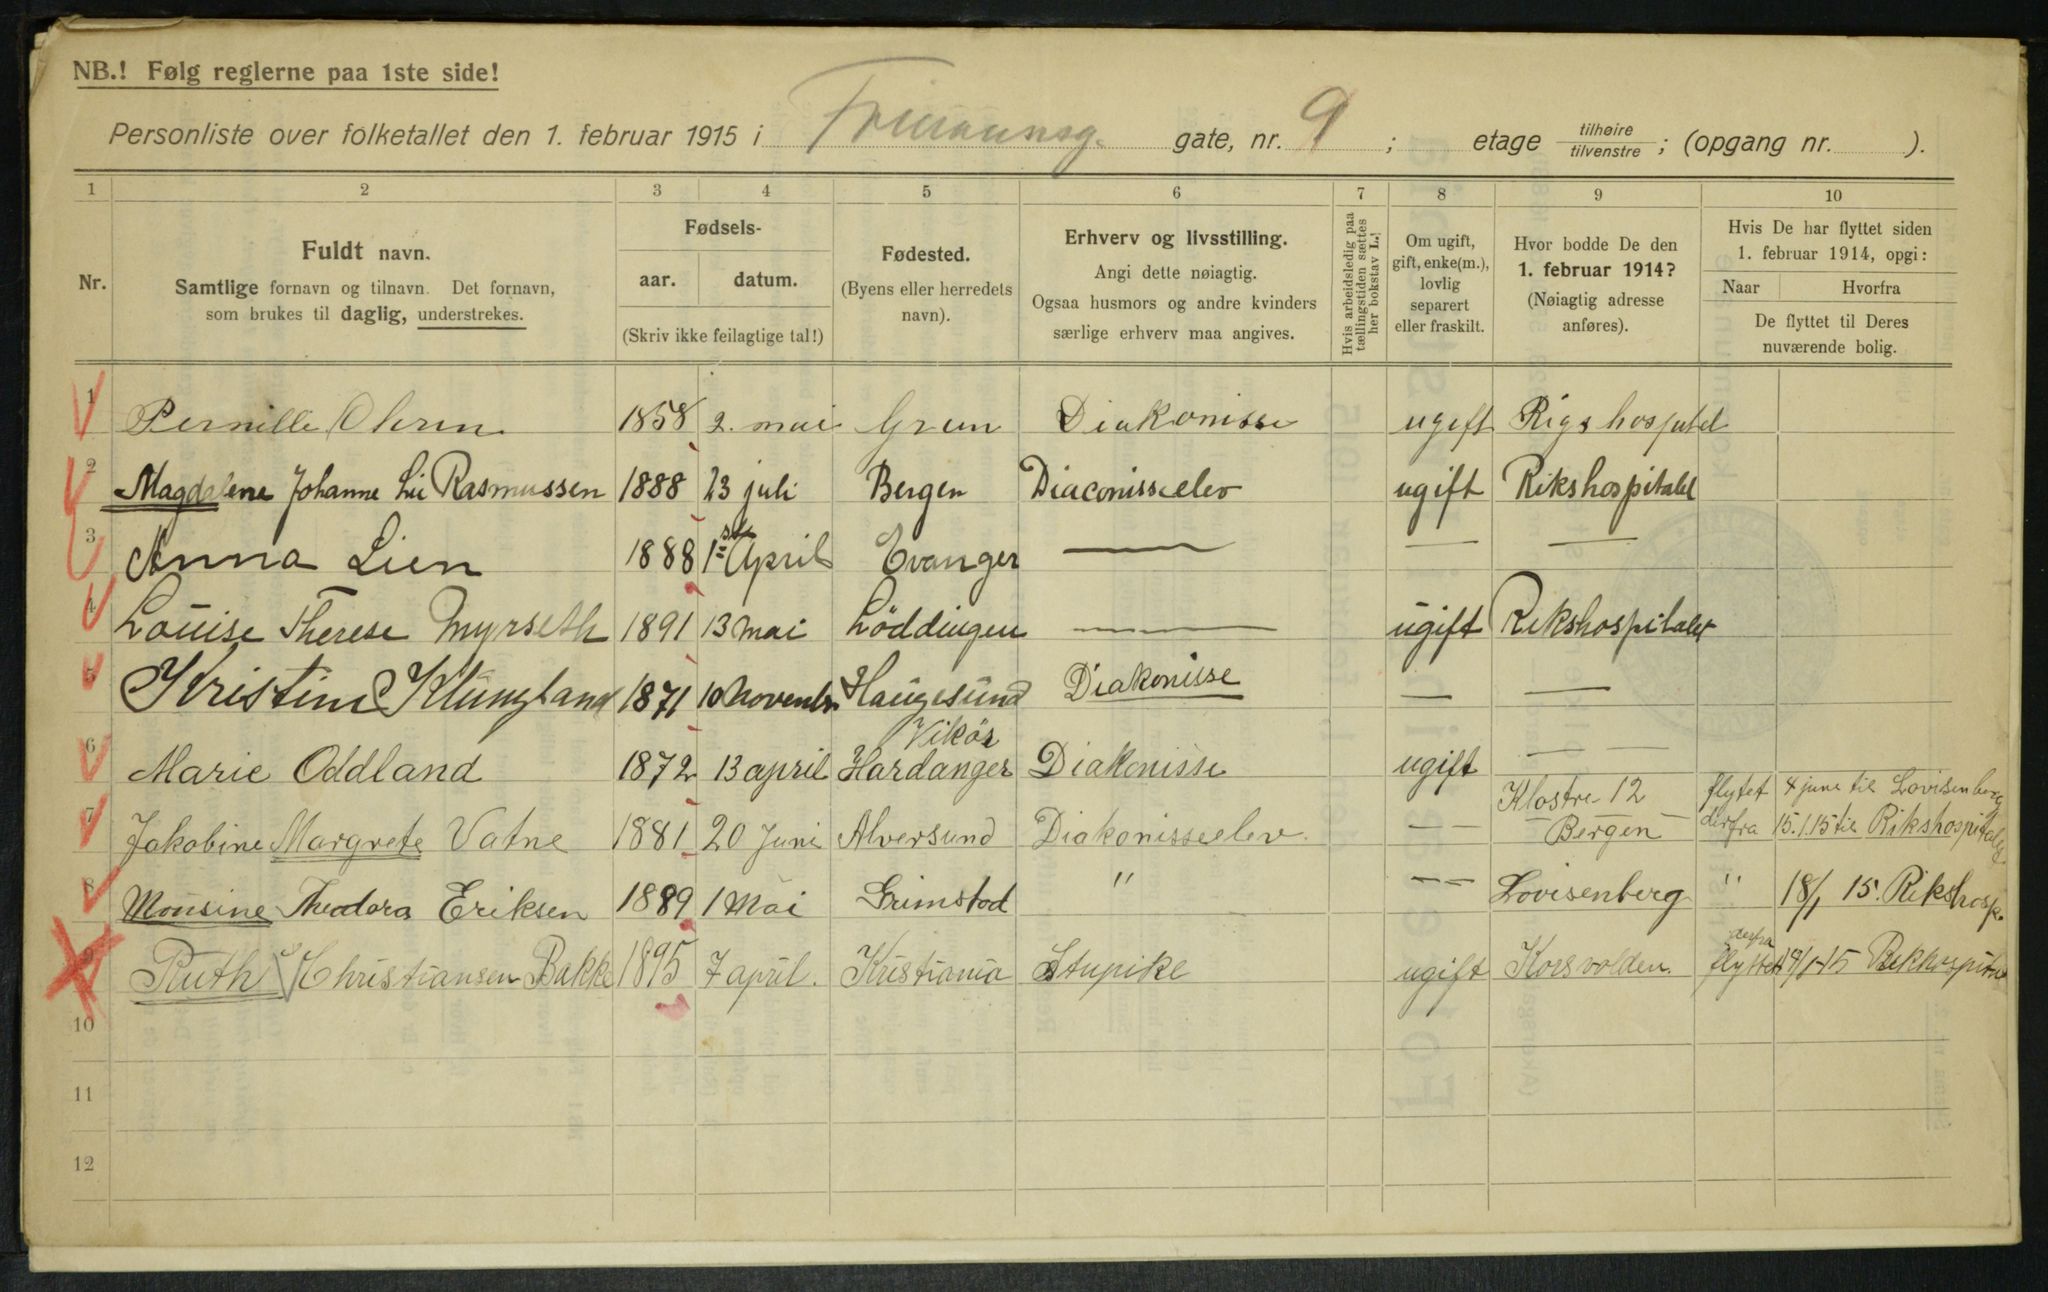 NB.! Følg reglerne paa 1ste side!
Personliste over folketallet den 1. februar 1915 i Frimannsg. gate, nr. 9 ; etage tilhøire tilvenstre ; (opgang nr. ).
1 2 3 4 5 6 7 8 9 10
Nr.
Fuldt navn.
Samtlige fornavn og tilnavn. Det fornavn,
som brukes til daglig, understrekes.
Fødsels-
aar. datum.
(Skriv ikke feilagtige tal!)
Fødested.
(Byens eller herredets
navn).
Erhverv og livsstilling.
Angi dette nøiagtig.
Ogsaa husmors og andre kvinders
særlige erhverv maa angives.
Hvis arbeidsledig paa
tællingstiden sættes
her bokstav L.!
Om ugift,
gift, enke(m.),
lovlig
separert
eller fraskilt.
Hvor bodde De den
1. februar 1914?
(Nøiagtig adresse
anføres).
Hvis De har flyttet siden
1. februar 1914, opgi:
Naar Hvorfra
De flyttet til Deres
nuværende bolig.
1 Pernille Ohren 1858 2. mai Grun Diakonisse ugift Rigshospitalet
2 Magdalene Johanne Lie Rasmussen 1888 23 juli Bergen Diaconisseelev ugift Rikshospitalet
3 Anna Lien 1888 1ste April Evanger — — —
4 Louise Therese Myrseth 1891 13 mai Löddingen — ugift Rikshospitalet
5 Kristine Klungland 1871 10 novembr Haugesund Diakonisse — —
6 Marie Oddland 1872 13 april Vikör Hardanger Diakonisse ugift — —
7 Jakobine Margrete Vatne 1881 20 Juni Alversund Diakonisseelev. — — Klostre 12 Bergen flytet 4 june til Lovisenberg derfra 15.1.15 til Rikshospitalet
8 Monsine Theodora Eriksen 1889 1 Mai Grimstad " — — Lovisenberg " 18/1 15. Rikshosp.
9 Ruth Christiansen Bakke 1895 7 april. Kristiania Stupike ugift Korsvolden. derfra flyttet 19/1-15 Rikshospital
10
11
12